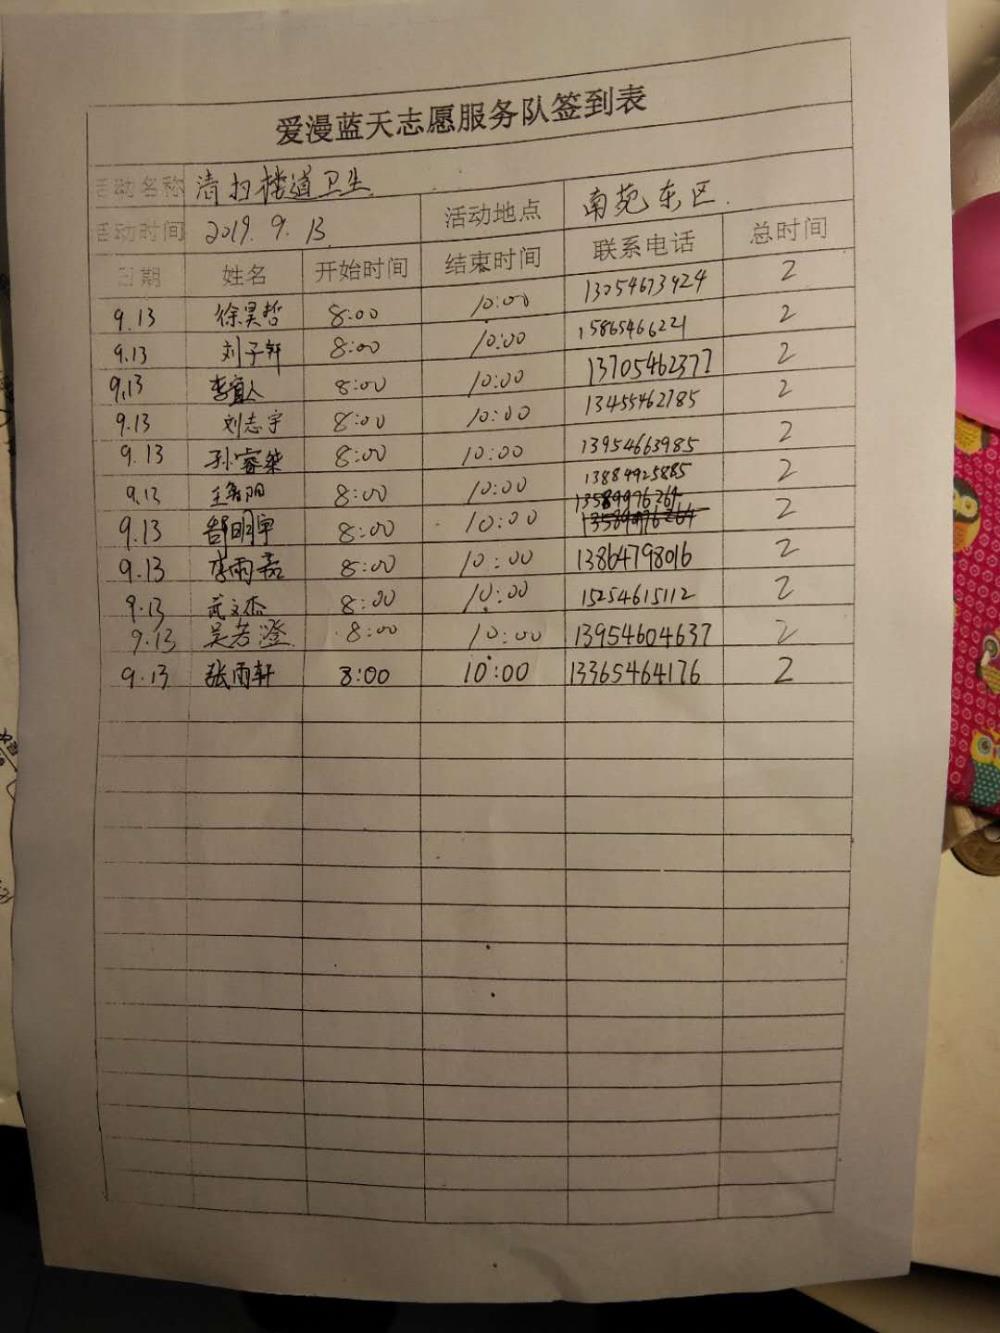 爱漫蓝天志愿服务队签到表
活动名称 清扫楼道卫生
活动时间 2019.9.13 活动地点 南苑东区.
日期 姓名 开始时间 结束时间 联系电话 总时间
9.13 徐昊哲 8:00 10:00 13054673924 2
9.13 刘子轩 8:00 10:00 15865466221 2
9.13 李宜人 8:00 10:00 13705462377 2
9.13 刘志宇 8:00 10:00 13455462785 2
9.13 孙睿桀 8:00 10:00 13954663985 2
9.13 王洛阳 8:00 10:00 13884925885 2
9.13 郜明宇 8:00 10:00 2
9.13 李雨嘉 8:00 10:00 13864798016 2
9.13 武文杰 8:00 10:00 15254615112 2
9.13 吴芳澄 8:00 10:00 13954604637 2
9.13 张雨轩 8:00 10:00 13365464176 2